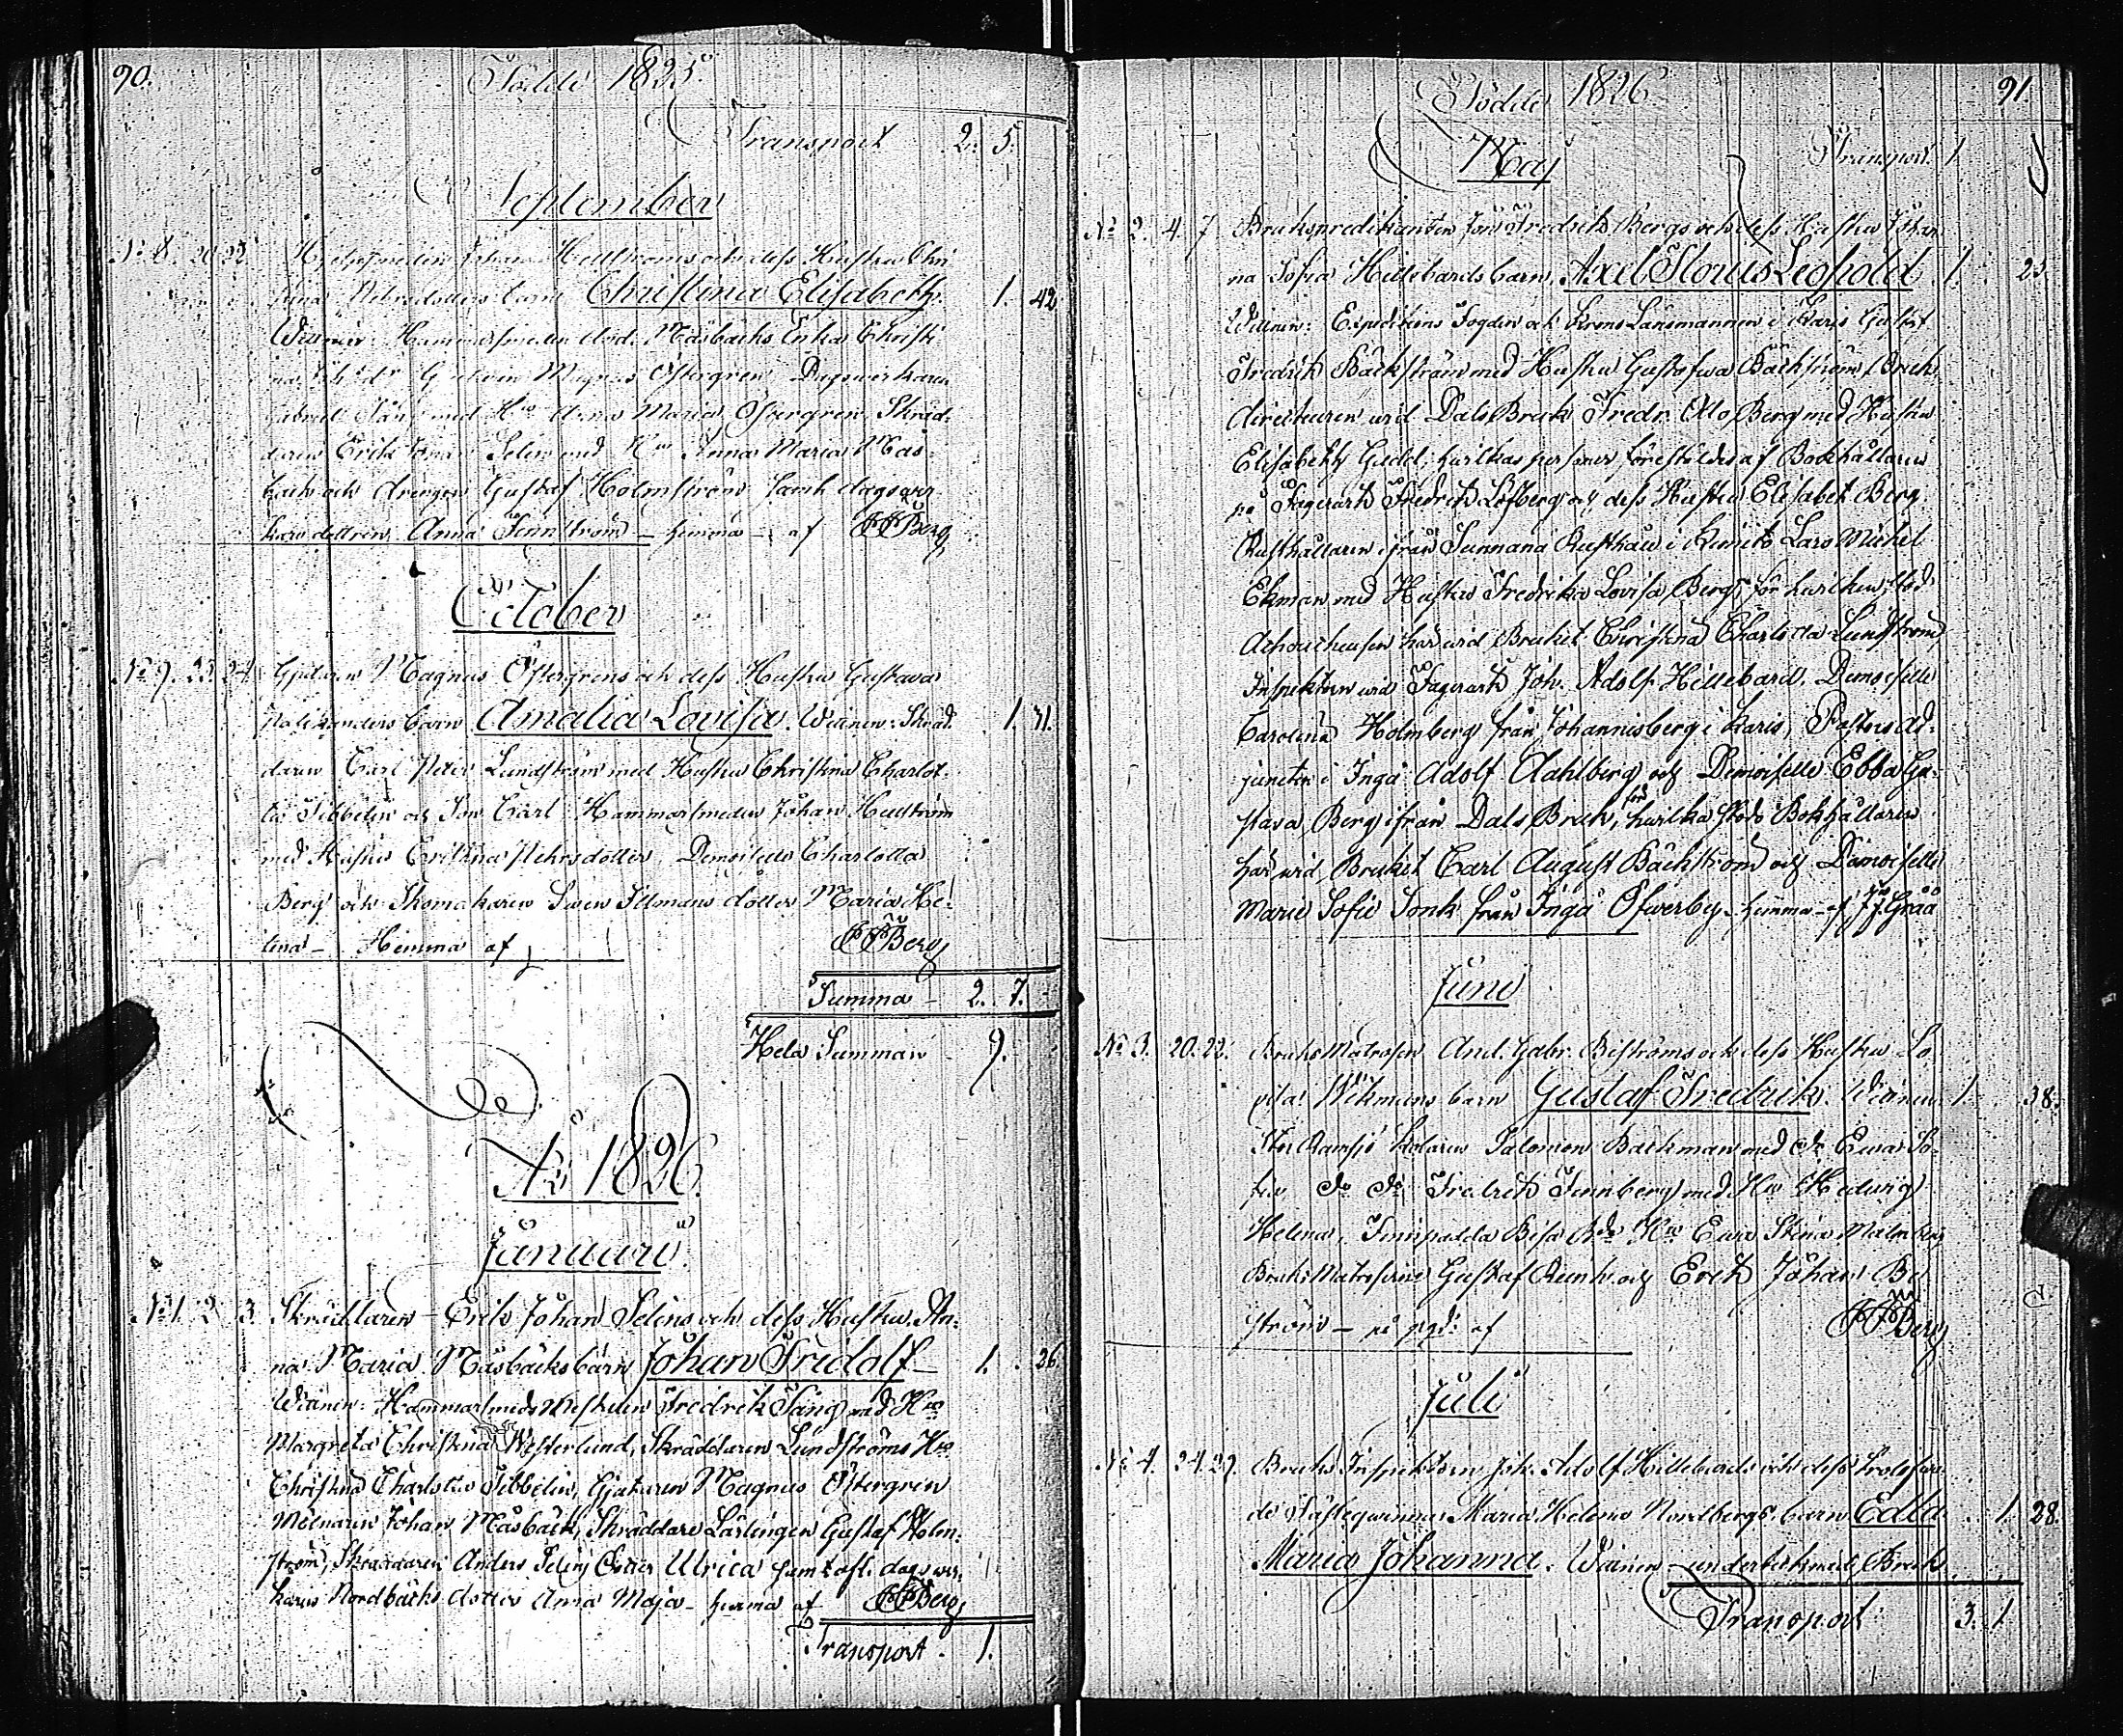 90.
Födde 1825.
Transport 2. 5.
September
No 8. 20 22 Hellströms och dess Hustru Chri
barn Christina Elisabeth. 1. 42
Wittnen: Hammarsmeden Måsbacks Enka Christi
na Magnus Östergren Dagsverkaren
Gabriel med Ho Anna Maria Östergren Skräd-
daren Erik Johan Selin med Ho Anna Maria Mås-
back och drengen Gustaf Holmström samt dagsver-
kare dottren Anna Finnström - hemma - af JFBerg
October
No 9. 23. 24. Gjutaren Magnus Östergrens och dess Hustru Gustava
barn Amalia Lovisa. Wittnen: Skräd- 1. 31.
daren Carl Petter Lundström med Hustru Christina Charlot-
ta Sibbelin och Son Carl. Hammarsmeden Johan Hellström
med Hustru Cristina Demoiselle Charlotta
Berg och Skomakaren Swen Illmans dotter Maria He-
lena - Hemma af JFBerg
Summa - 2. 7.
Hela Summan 9.
Ao 1826.
Januari
No 1. 2 3. Skräddaren - Erik Johan Selins och dess Hustru An-
na Maria Måsbäcks barn Johan Fridolf - 1. 26
Wittnen: Hammarsmeds Mestaren Fredrik Säng med Ho
Margreta Christina Westerlund, Skräddaren Lundströms Ho
Christina Charlotta Sibbelin, Gjutaren Magnus Östergren
Mölnaren Johan Måsbäck, Skräddare Lärlingen Gustaf Holm-
ström, Skräddaren Anders Selins Dotter Ulrica samt afl. dagsver-
karen Nordbäcks dotter Anna Maja - hemma af JFBerg
Transport. 1.
Födde 1826 91
Maj Transport. 1
No 2. 4. 7 Brukspredikanten Jon Fredrik Bergs och dess Hustru Johan-
na Sofia Hillebards barn, Axel Florus Leopold 1. 25
Wittnen: Expeditions Fogden och Krono Länsmannen i Karis Gustaf
Fredrik Bäckström med Hustru Gustafwa Bäckström, Bruks
directeuren wid Dals Bruk Fredr. Otto Berg med Hustru
Elisabeth Gadd, hwilkas personer föreställdes af Bokhållaren
på Fagerwik Fredrik Löfberg och dess Hustru Elisabet Berg
Rusthållaren ifrån Sunnanå Rusthåll i Kimito Lars Michel
Ekman med Hustru Fredrika Lovisa Berg, för hwilken stod
här wid Bruket Christina Charlotta Lundström
Inspektoren wid Fagerwik Joh. Adolf Hillebard. Demoiselle
Carolina Holmberg från Johannisberg i Karis, Pastors ad-
juncten i Ingå Adolf Aahlberg och Demoiselle Ebba Gu-
stava Berg ifrån Dals Bruk, för hwilka stodo Bokhållaren
här wid Bruket Carl August Bäckström och Damoiselle
Marie Sofie Sonk från Ingå Öfwerby - hemma - af J.Gråå
Juni
No 3. 20. 23. Bruks Matrosen And. Gabr. Biströms och dess Hustru Lo-
visa Wikmans barn Gustaf Fredrik. Wittnen 1. 38.
Kolaren Salomon Backman med do Ewa So-
fia do do Fredrik Finnberg med Ho Hedwig
Helena, Ho Ewa Stina Malmberg
Bruks Matroserne Gustaf Renk och Erik Johan Bi-
ström - af JFBerg
Juli
No 4. 24. 29. Bruks Inspektoren Joh. Adolf Hillebards och dess trolofwa-
de Fästeqwinna Maria Helena Nordbergs barn Edla 1 28.
Maria Johanna. Wittnen - undertecknade Bruk
Transport 3. 1